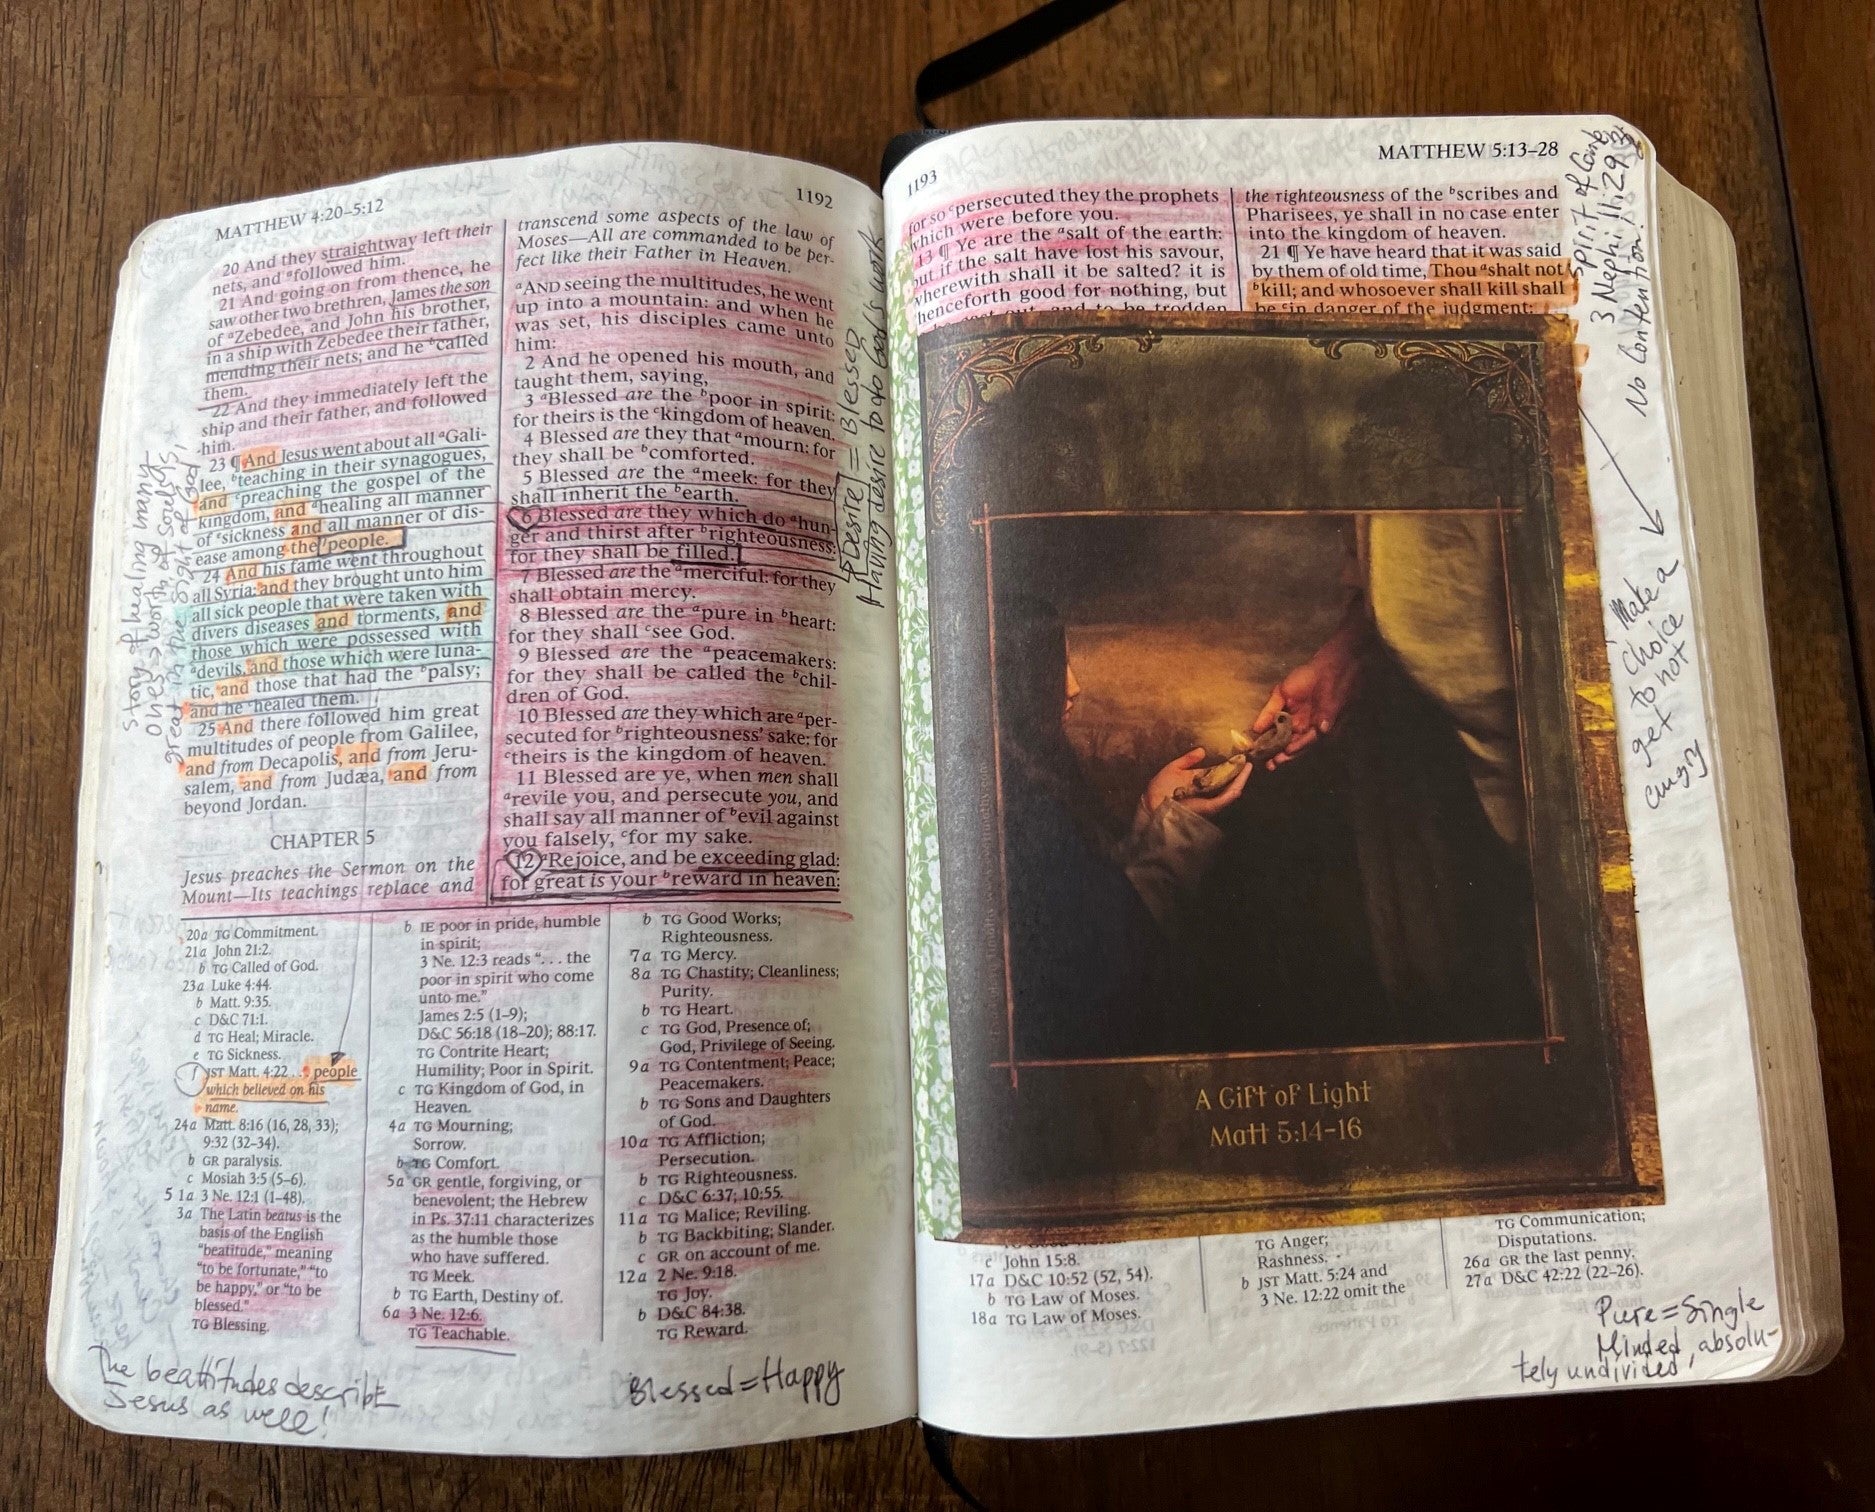 MATTHEW 4:20–5:12
1192
20 And they straightway left their
nets, and ᵃfollowed him.
21 And going on from thence, he
saw other two brethren, James the son
of ᵃZebedee, and John his brother,
in a ship with Zebedee their father,
mending their nets; and he ᵇcalled
them.
22 And they immediately left the
ship and their father, and followed
him.
23 ¶ And Jesus went about all ᵃGali-
lee, ᵇteaching in their synagogues,
and ᶜpreaching the gospel of the
kingdom, and ᵈhealing all manner
of ᵉsickness and all manner of dis-
ease among the ᶠpeople.
24 And his fame went throughout
all Syria: and they brought unto him
all sick people that were taken with
divers diseases and torments, and
those which were possessed with
ᵃdevils, and those which were luna-
tic, and those that had the ᵇpalsy;
and he ᶜhealed them.
25 And there followed him great
multitudes of people from Galilee,
and from Decapolis, and from Jeru-
salem, and from Judæa, and from
beyond Jordan.
CHAPTER 5
Jesus preaches the Sermon on the
Mount—Its teachings replace and
transcend some aspects of the law of
Moses—All are commanded to be per-
fect like their Father in Heaven.
ᵃAND seeing the multitudes, he went
up into a mountain: and when he
was set, his disciples came unto
him:
2 And he opened his mouth, and
taught them, saying,
3 ᵃBlessed are the ᵇpoor in spirit:
for theirs is the ᶜkingdom of heaven.
4 Blessed are they that ᵃmourn: for
they shall be ᵇcomforted.
5 Blessed are the ᵃmeek: for they
shall inherit the ᵇearth.
6 Blessed are they which do ᵃhun-
ger and thirst after ᵇrighteousness:
for they shall be filled.
7 Blessed are the ᵃmerciful: for they
shall obtain mercy.
8 Blessed are the ᵃpure in ᵇheart:
for they shall ᶜsee God.
9 Blessed are the ᵃpeacemakers:
for they shall be called the ᵇchil-
dren of God.
10 Blessed are they which are ᵃper-
secuted for ᵇrighteousness' sake: for
ᶜtheirs is the kingdom of heaven.
11 Blessed are ye, when men shall
ᵃrevile you, and persecute you, and
shall say all manner of ᵇevil against
you falsely, ᶜfor my sake.
12 ᵃRejoice, and be exceeding glad:
for great is your ᵇreward in heaven:
story of healing many
ones → worth of souls is
great in the sight of God!
Desire = Blessed
Having desire to do God's work
20a TG Commitment.
21a John 21:2.
b TG Called of God.
23a Luke 4:44.
b Matt. 9:35.
c D&C 71:1.
d TG Heal; Miracle.
e TG Sickness.
f JST Matt. 4:22 . . . people
which believed on his
name.
24a Matt. 8:16 (16, 28, 33);
9:32 (32–34).
b GR paralysis.
c Mosiah 3:5 (5–6).
5 1a 3 Ne. 12:1 (1–48).
3a The Latin beatus is the
basis of the English
"beatitude," meaning
"to be fortunate," "to
be happy," or "to be
blessed."
TG Blessing.
b IE poor in pride, humble
in spirit;
3 Ne. 12:3 reads ". . . the
poor in spirit who come
unto me."
James 2:5 (1–9);
D&C 56:18 (18–20); 88:17.
TG Contrite Heart;
Humility; Poor in Spirit.
c TG Kingdom of God, in
Heaven.
4a TG Mourning;
Sorrow.
b TG Comfort.
5a GR gentle, forgiving, or
benevolent; the Hebrew
in Ps. 37:11 characterizes
as the humble those
who have suffered.
TG Meek.
b TG Earth, Destiny of.
6a 3 Ne. 12:6.
TG Teachable.
b TG Good Works;
Righteousness.
7a TG Mercy.
8a TG Chastity; Cleanliness;
Purity.
b TG Heart.
c TG God, Presence of;
God, Privilege of Seeing.
9a TG Contentment; Peace;
Peacemakers.
b TG Sons and Daughters
of God.
10a TG Affliction;
Persecution.
b TG Righteousness.
c D&C 6:37; 10:55.
11a TG Malice; Reviling.
b TG Backbiting; Slander.
c GR on account of me.
12a 2 Ne. 9:18.
TG Joy.
b D&C 84:38.
TG Reward.
The beattitudes describe
Jesus as well!
Blessed = Happy
1193
MATTHEW 5:13–28
for so ᶜpersecuted they the prophets
which were before you.
13 ¶ Ye are the ᵃsalt of the earth:
but if the salt have lost his savour,
wherewith shall it be salted? it is
henceforth good for nothing, but
the righteousness of the ᵇscribes and
Pharisees, ye shall in no case enter
into the kingdom of heaven.
21 ¶ Ye have heard that it was said
by them of old time, Thou ᵃshalt not
ᵇkill; and whosoever shall kill shall
be ᶜin danger of the judgment:
3 Nephi 11:29
No Contention.
Make a
choice
to not
get
angry
A Gift of Light
Matt 5:14-16
c John 15:8.
17a D&C 10:52 (52, 54).
b TG Law of Moses.
18a TG Law of Moses.
TG Anger;
Rashness.
b JST Matt. 5:24 and
3 Ne. 12:22 omit the
TG Communication;
Disputations.
26a GR the last penny.
27a D&C 42:22 (22–26).
Pure = Single
Minded, absolu-
tely undivided,